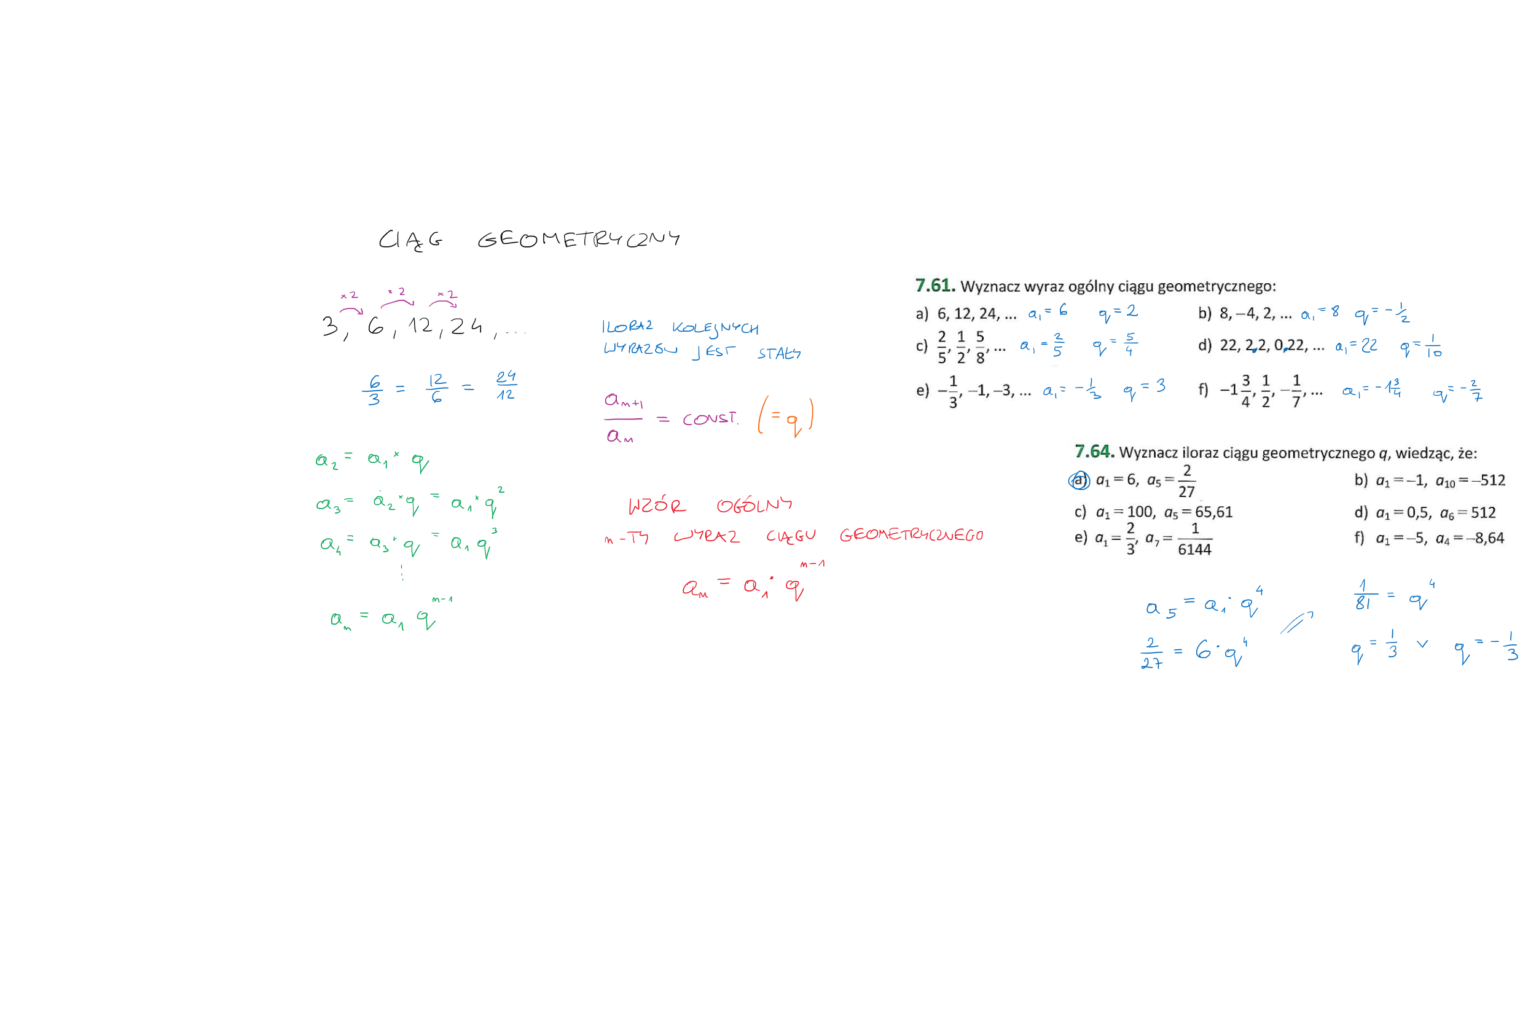 CIĄG GEOMETRYCZNY
×2 ×2 ×2
3, 6, 12, 24, ...
6/3 = 12/6 = 24/12
a₂ = a₁ · q
a₃ = a₂ · q = a₁ · q²
a₄ = a₃ · q = a₁ q³
⋮
aₙ = a₁ qⁿ⁻¹
ILORAZ KOLEJNYCH
WYRAZÓW JEST STAŁY
aₙ₊₁/aₙ = CONST. (= q)
WZÓR OGÓLNY
n-TY WYRAZ CIĄGU GEOMETRYCZNEGO
aₙ = a₁ · qⁿ⁻¹
7.61. Wyznacz wyraz ogólny ciągu geometrycznego:
a) 6, 12, 24, ... a₁ = 6 q = 2 b) 8, −4, 2, ... a₁ = 8 q = −1/2
c) 2/5, 1/2, 5/8, ... a₁ = 2/5 q = 5/4 d) 22, 2,2, 0,22, ... a₁ = 22 q = 1/10
e) −1/3, −1, −3, ... a₁ = −1/3 q = 3 f) −1 3/4, 1/2, −1/7, ... a₁ = −1 3/4 q = −2/7
7.64. Wyznacz iloraz ciągu geometrycznego q, wiedząc, że:
a) a₁ = 6, a₅ = 2/27 b) a₁ = −1, a₁₀ = −512
c) a₁ = 100, a₅ = 65,61 d) a₁ = 0,5, a₆ = 512
e) a₁ = 2/3, a₇ = 1/6144 f) a₁ = −5, a₄ = −8,64
a₅ = a₁ · q⁴
2/27 = 6 · q⁴
1/81 = q⁴
q = 1/3 ∨ q = −1/3